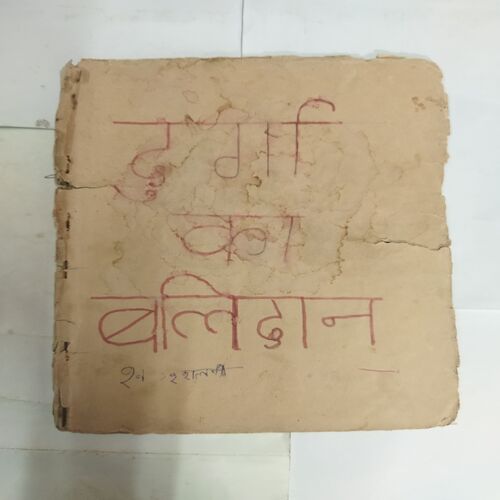 दुर्गा
का
बलिदान